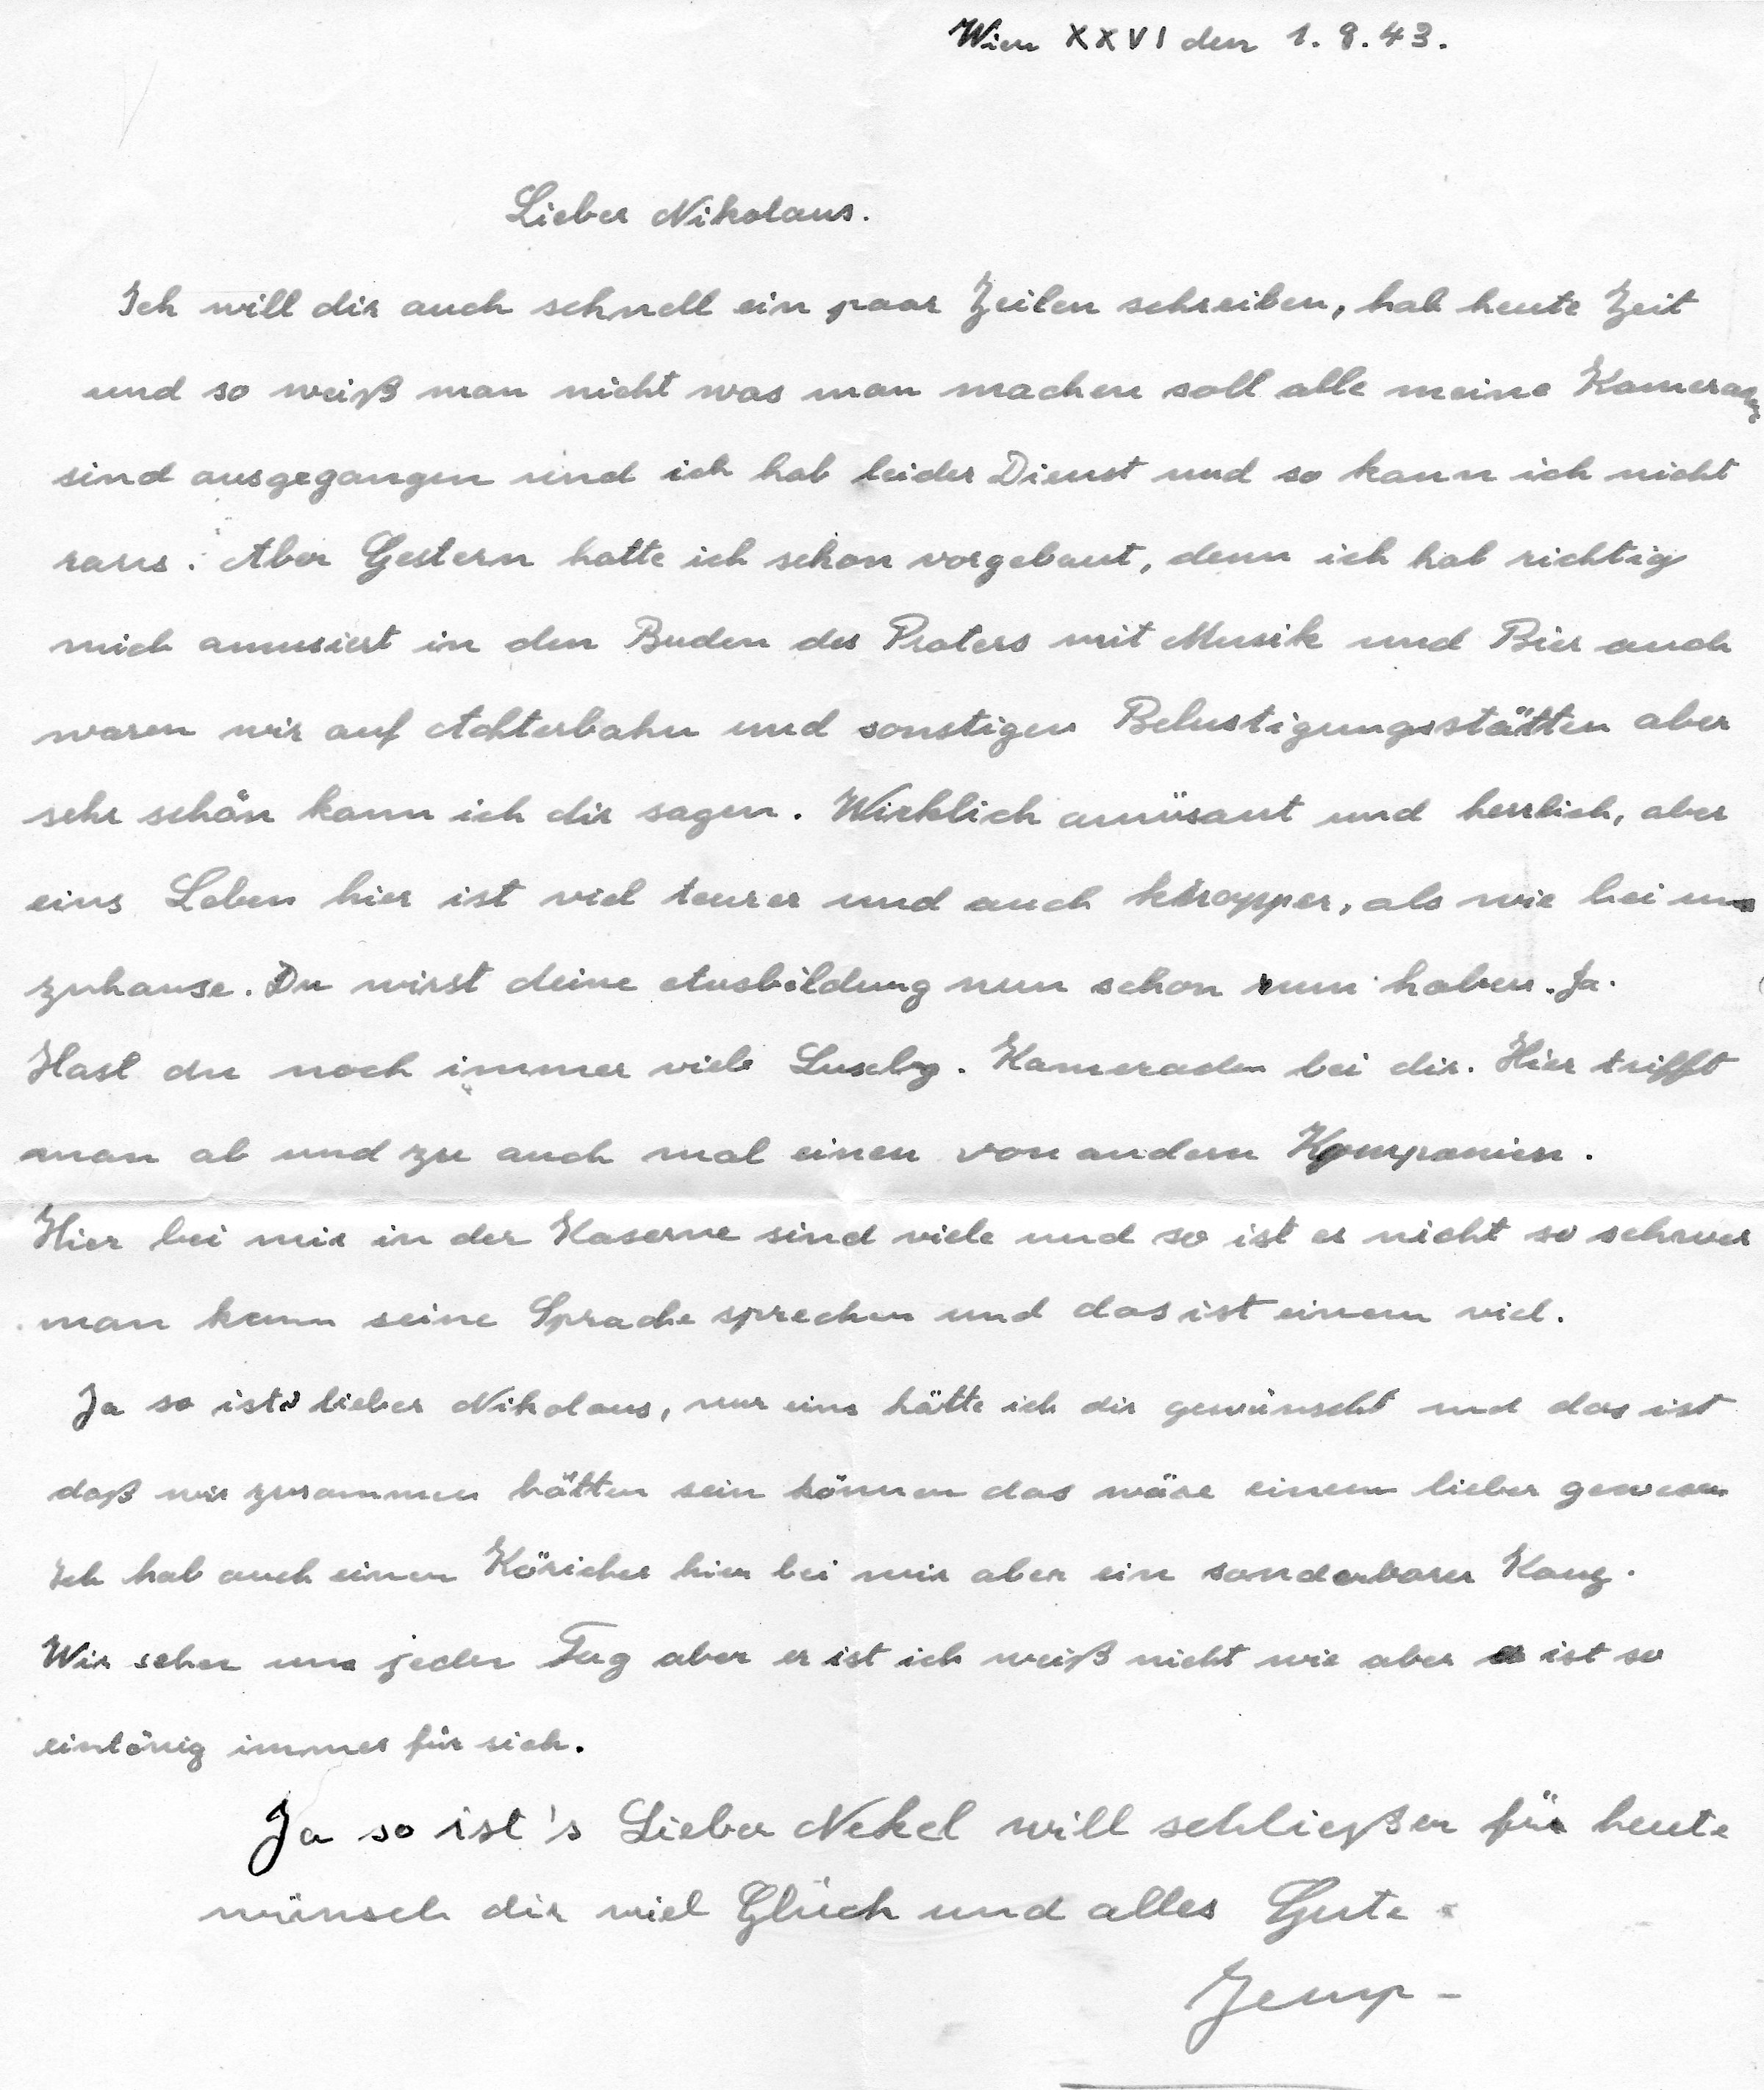 Wien XXVI den 1.8.43.
Lieber Nikolaus.
Ich will dir auch schnell ein paar Zeilen schreiben, hab heute Zeit
und so weiß man nicht was man machen soll alle meine Kameraden
sind ausgegangen und ich hab leider Dienst und so kann ich nicht
raus. Aber Gestern hatte ich schon vorgebaut, denn ich hab richtig
mich amusiert in den Buden des Praters mit Musik und Bier auch
waren wir auf Achterbahn und sonstigen Belustigungsstätten aber
sehr schön kann ich dir sagen. Wirklich amüsant und herrlich, aber
eins Leben hier ist viel teurer und auch knapper, als wie bei uns
zuhause. Du wirst deine Ausbildung nun schon rum haben. Ja.
Hast du noch immer viele Luxbg. Kameraden bei dir. Hier trifft
man ab und zu auch mal einen von andern Kompanien.
Hier bei mir in der Kaserne sind viele und so ist es nicht so schwer
man kann seine Sprache sprechen und das ist einem viel.
Ja so ists lieber Nikolaus, nur eins hätte ich dir gewünscht und das ist
daß wir zusammen hätten sein können das wäre einem lieber gewesen
Ich hab auch einen Köricher hier bei mir aber ein sonderbarer Kauz.
Wir sehen uns jeden Tag aber er ist ich weiß nicht wie aber er ist so
eintönig immer für sich.
Ja so ist's Lieber Nekel will schließen für heute
wünsch dir viel Glück und alles Gute.
Jemp -